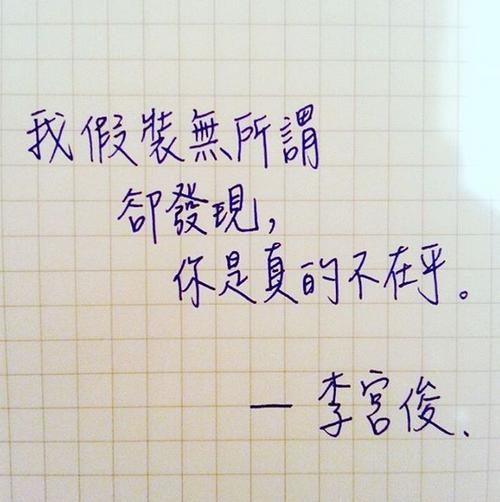 我假裝無所謂
卻發現,
你是真的不在乎。
— 李宮俊、